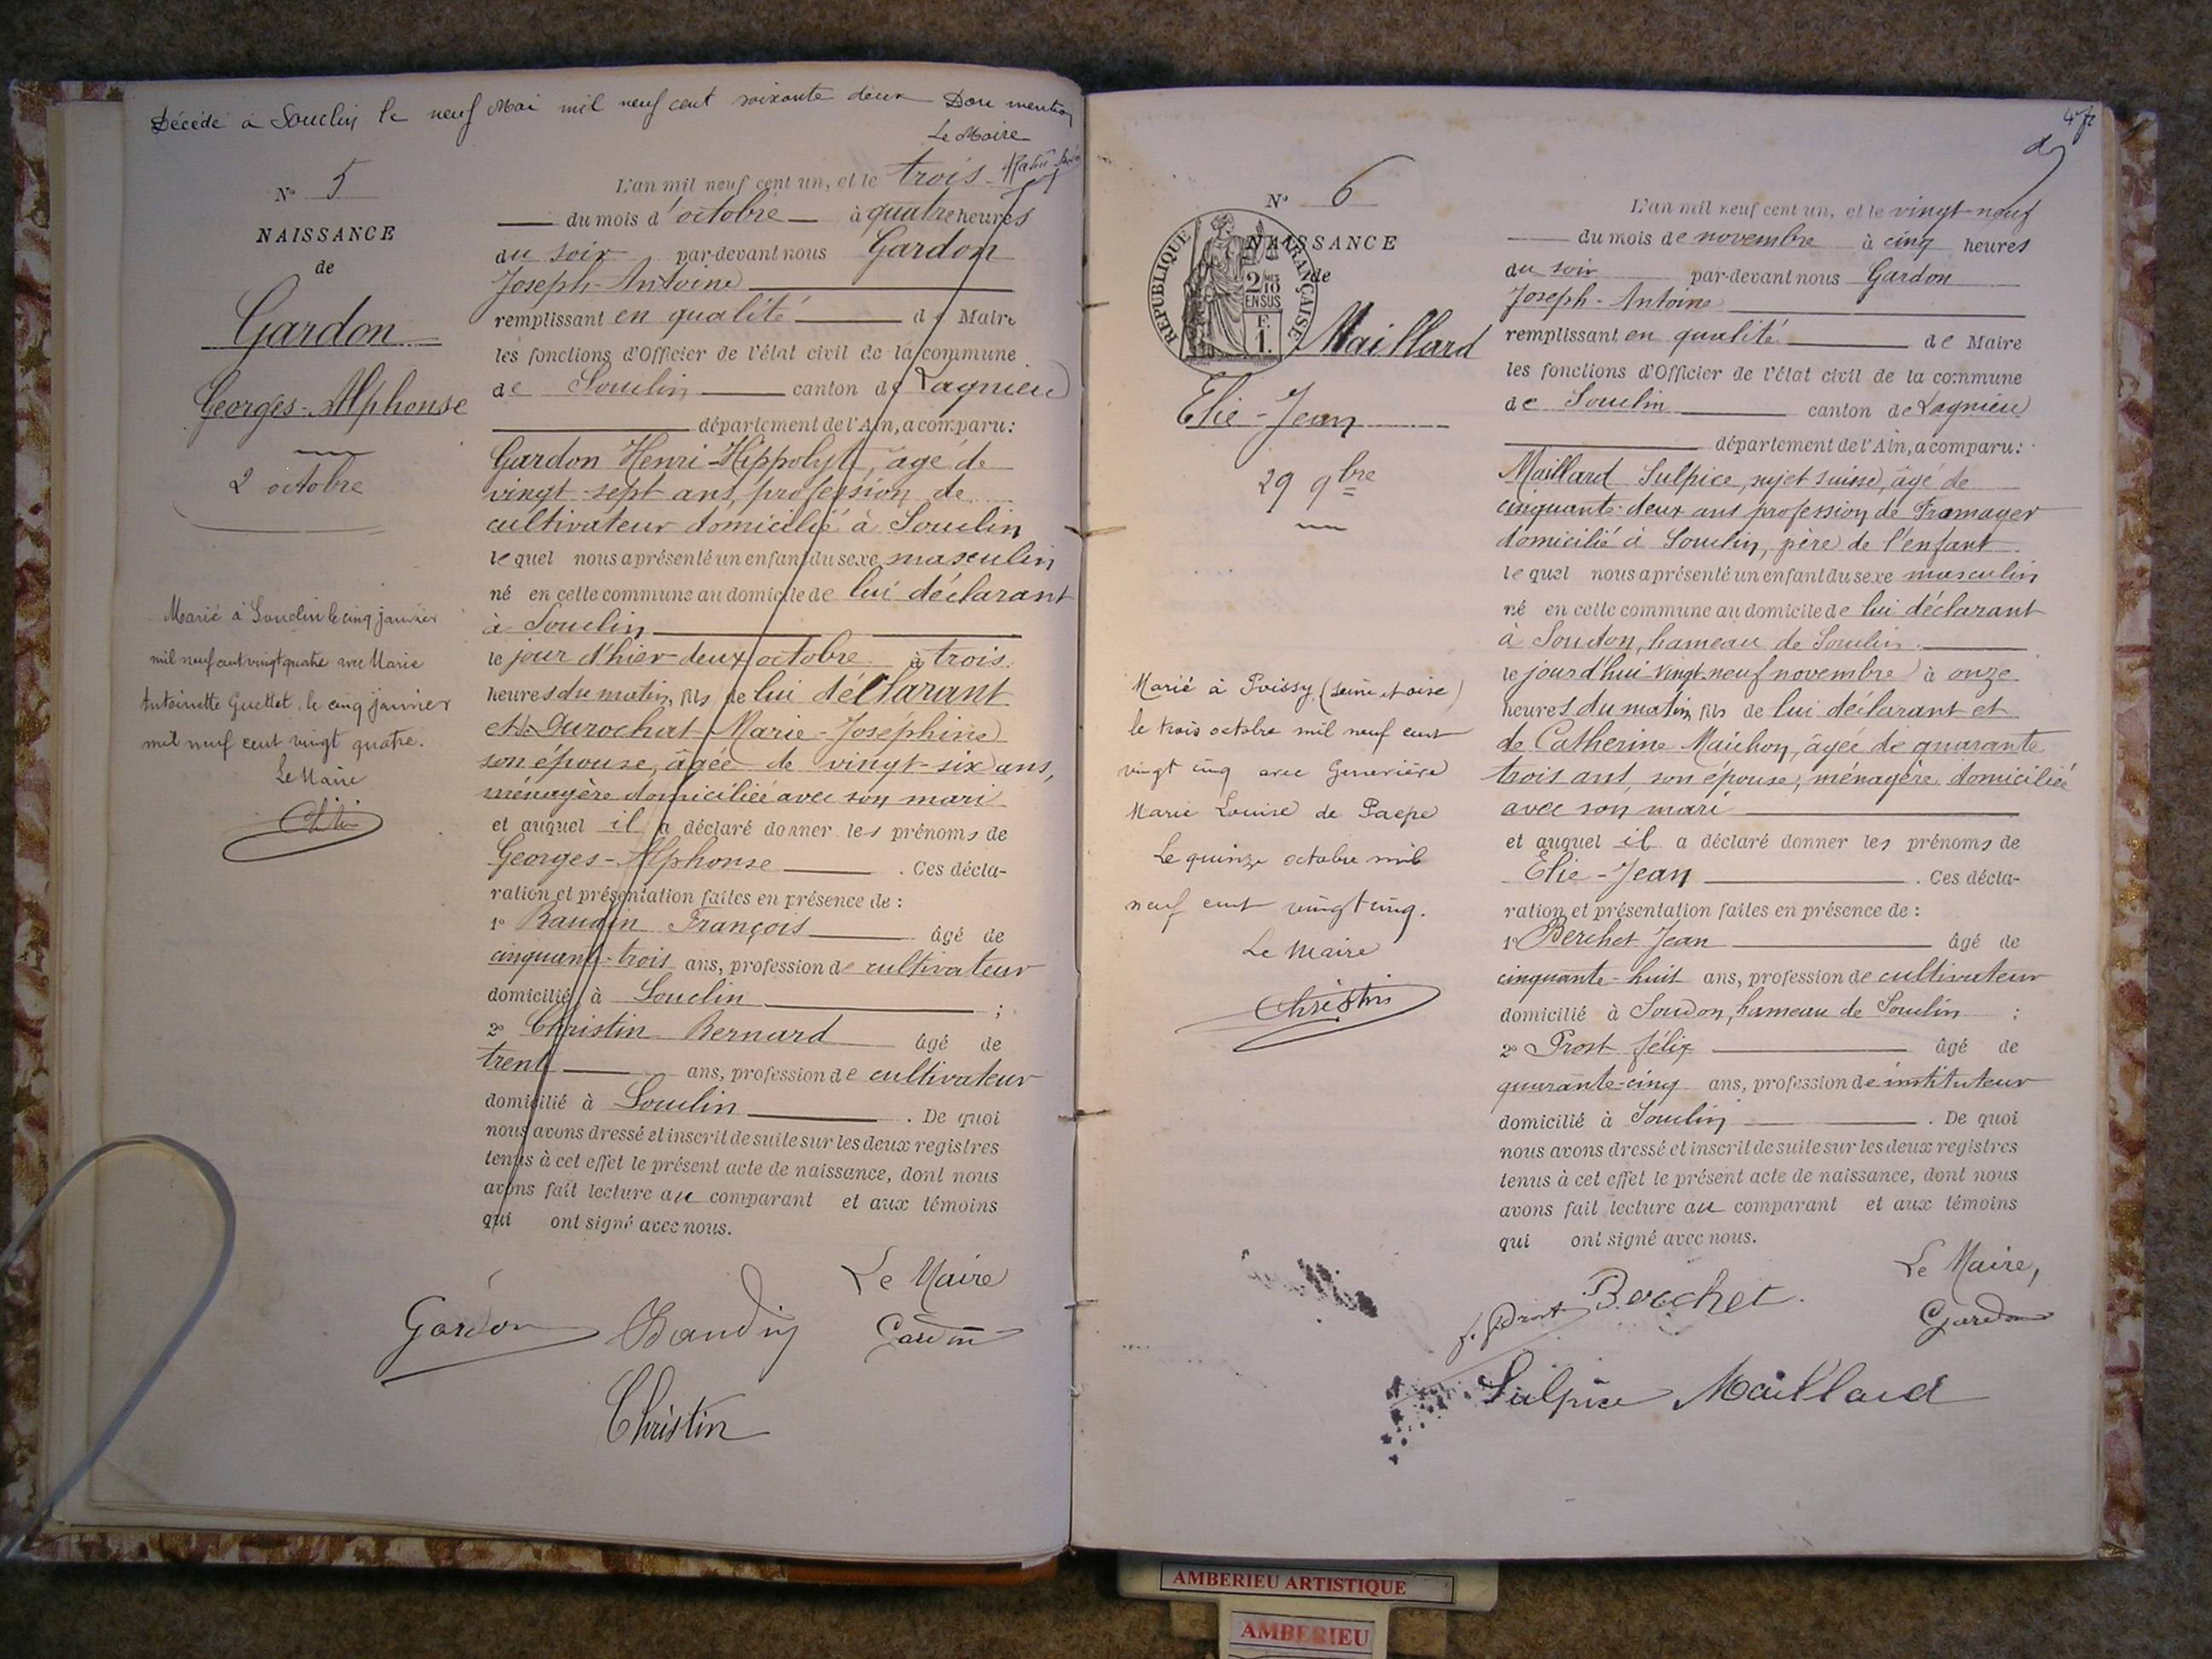 Décédé à Souclin le neuf Mai mil neuf cent soixante deux Dont mention
Le Maire
N° 5
NAISSANCE
de
Gardon
Georges-Alphonse
2 octobre
Marié à Souclin le cinq janvier
mil neuf cent vingt quatre avec Marie
Antoinette Guettet, le cinq janvier
mil neuf cent vingt quatre.
Le Maire
L'an mil neuf cent un, et le trois
du mois d'octobre à quatre heures
du soir par-devant nous Gardon
Joseph-Antoine
remplissant en qualité de Maire
les fonctions d'Officier de l'état civil de la commune
de Souclin canton de Lagnieu
département de l'Ain, a comparu:
Gardon Henri-Hippolyte, âgé de
vingt-sept ans, profession de
cultivateur domicilié à Souclin
lequel nous a présenté un enfant du sexe masculin
né en cette commune au domicile de lui déclarant
à Souclin
le jour d'hier deux octobre à trois
heures du matin, fils de lui déclarant
et de Durochat Marie-Joséphine
son épouse, âgée de vingt-six ans,
ménagère domiciliée avec son mari
et auquel il a déclaré donner les prénoms de
Georges-Alphonse. Ces décla-
ration et présentation faites en présence de :
1° Baudin François âgé de
cinquante-trois ans, profession de cultivateur
domicilié à Souclin ;
2° Christin Bernard âgé de
trente ans, profession de cultivateur
domicilié à Souclin. De quoi
nous avons dressé et inscrit de suite sur les deux registres
tenus à cet effet le présent acte de naissance, dont nous
avons fait lecture au comparant et aux témoins
qui ont signé avec nous.
Le Maire
Gardon Baudin Gardon
Christin
4 fr
N° 6
NAISSANCE
de
REPUBLIQUE FRANÇAISE
2/10 EN SUS
F. 1.
Maillard
Elie-Jean
29 9bre
Marié à Poissy (Seine et oise)
le trois octobre mil neuf cent
vingt cinq avec Geneviève
Marie Louise de Paepe
Le quinze octobre mil
neuf cent vingt cinq.
Le Maire
Christin
L'an mil neuf cent un, et le vingt-neuf
du mois de novembre à cinq heures
du soir par-devant nous Gardon
Joseph-Antoine
remplissant en qualité de Maire
les fonctions d'Officier de l'état civil de la commune
de Souclin canton de Lagnieu
département de l'Ain, a comparu:
Maillard Sulpice, sujet suisse, âgé de
cinquante-deux ans profession de Fromager
domicilié à Souclin, père de l'enfant
lequel nous a présenté un enfant du sexe masculin
né en cette commune au domicile de lui déclarant
à Soudon, hameau de Souclin
le jourd'hui vingt-neuf novembre à onze
heures du matin, fils de lui déclarant et
de Catherine Maichon, âgée de quarante
trois ans, son épouse, ménagère domiciliée
avec son mari
et auquel il a déclaré donner les prénoms de
Elie-Jean. Ces décla-
ration et présentation faites en présence de :
1° Berchet Jean âgé de
cinquante-huit ans, profession de cultivateur
domicilié à Soudon, hameau de Souclin ;
2° Prost félix âgé de
quarante-cinq ans, profession de instituteur
domicilié à Souclin. De quoi
nous avons dressé et inscrit de suite sur les deux registres
tenus à cet effet le présent acte de naissance, dont nous
avons fait lecture au comparant et aux témoins
qui ont signé avec nous.
Le Maire,
f. Prost Berchet. Gardon
Sulpice Maillard
AMBERIEU ARTISTIQUE
AMBERIEU